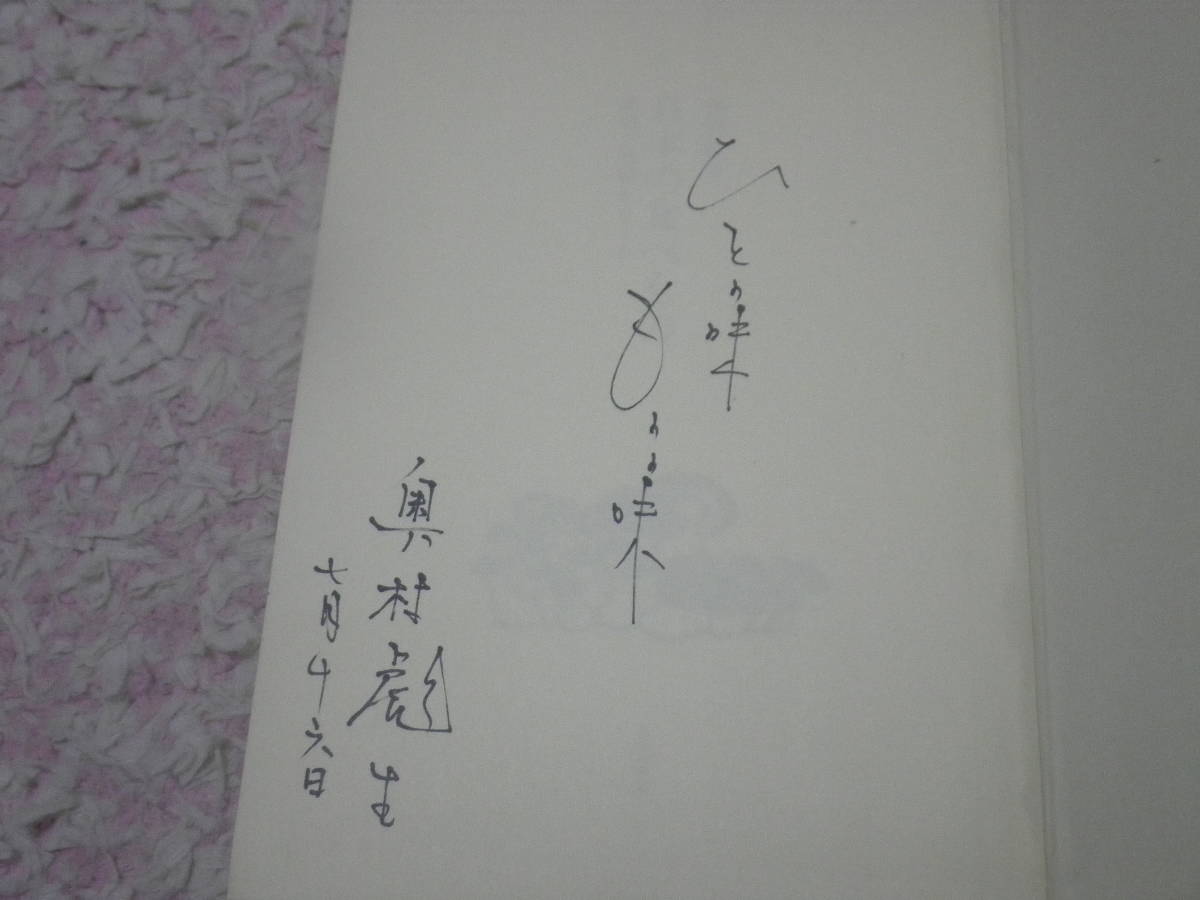 ひとの味
ものの味
奥村彪生
七月十六日